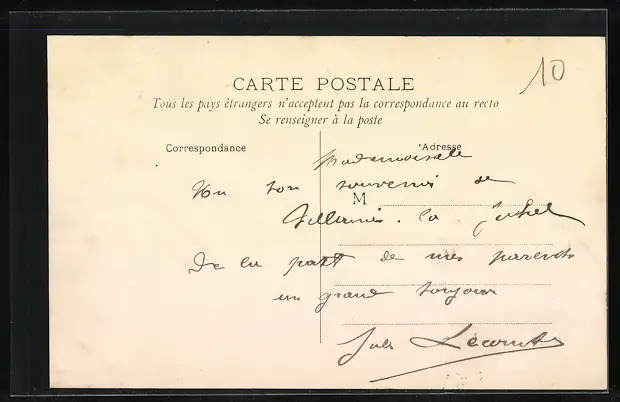 10
CARTE POSTALE
Tous les pays étrangers n'acceptent pas la correspondance au recto
Se renseigner à la poste
Correspondance
Adresse
Mademoiselle
Un bon souvenir de
M
la
De la part de mes parents
un grand bonjour
Lecomte